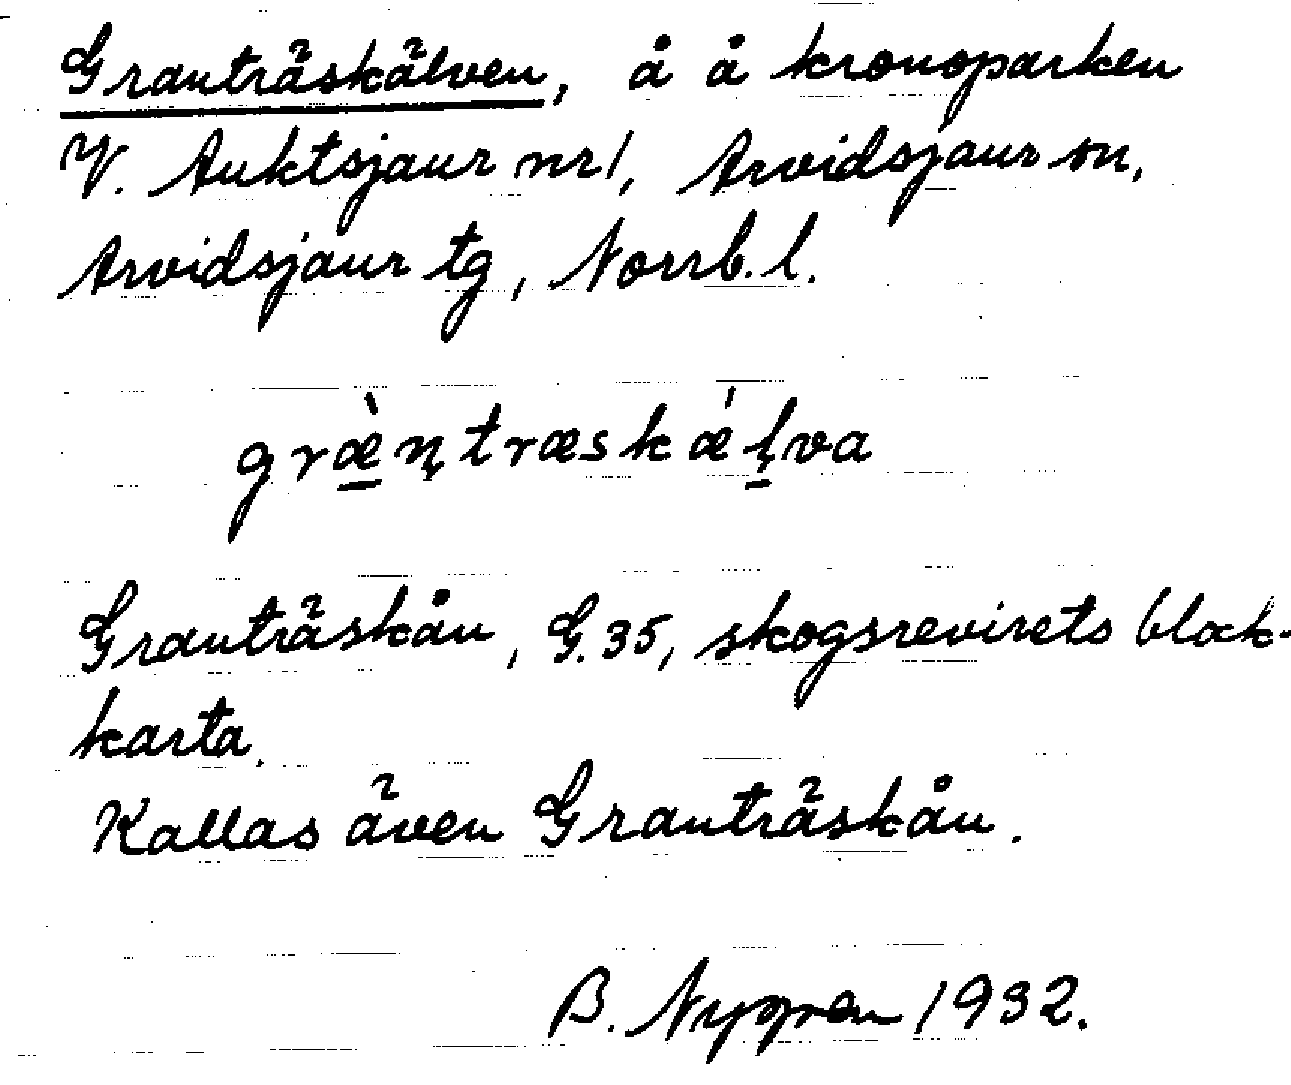 Granträskälven, å å kronoparken
V. Auktsjaur nr 1, Arvidsjaur sn,
Arvidsjaur tg, Norrb. l.
græ̀n̨træskǽl̨va
Granträskån, G. 35, skogsrevirets block-
karta.
Kallas även Granträskån.
B. Nygren 1932.